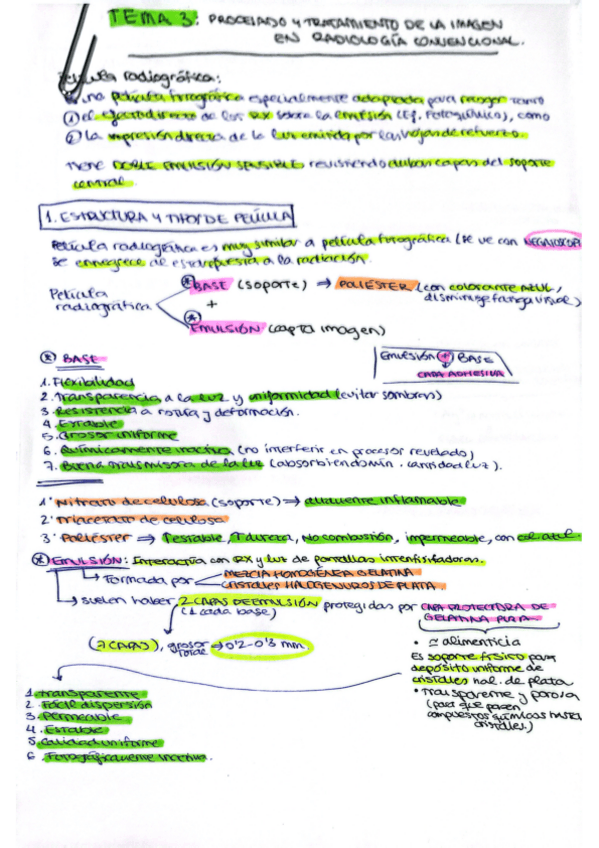 TEMA 3: PROCESADO Y TRATAMIENTO DE LA IMAGEN
EN RADIOLOGÍA CONVENCIONAL.
Película radiográfica:
Es una película fotográfica especialmente adaptada para recoger tanto
① el efecto directo de los RX sobre la emulsión (Ef. Fotoquímico), como
② la impresión directa de la luz emitida por las hojas de refuerzo.
TIENE DOBLE EMULSIÓN SENSIBLE, revistiendo ambas capas del soporte
central.
1. ESTRUCTURA Y TIPOS DE PELÍCULA
Película radiográfica es muy similar a película fotográfica (se ve con NEGATOSCOPI
Se ennegrece de esta respuesta a la radiación.
Película radiográfica
* BASE (soporte) → POLIÉSTER (con colorante AZUL,
disminuye fatiga visual)
+
* EMULSIÓN (capta imagen)
* BASE
Emulsión + BASE
CAPA ADHESIVA
1. Flexibilidad
2. Transparencia a la luz y uniformidad (evitar sombras)
3. Resistencia a rotura y deformación.
4. Estable
5. Grosor uniforme
6. Químicamente inactiva (no interferir en procesos revelado)
7. Buena transmisora de la luz (absorbiendo mín. cantidad luz).
1º Nitrato de celulosa (soporte) → altamente inflamable
2º Triacetato de celulosa
3º Poliéster → ↑estable, ↑dureza, No combustión, impermeable, con col. azul.
* EMULSIÓN: Interactúa con RX y luz de pantallas intensificadoras.
Formada por
MEZCLA HOMOGÉNEA GELATINA
CRISTALES HALOGENUROS DE PLATA.
suelen haber 2 CAPAS DE EMULSIÓN protegidas por CAPA PROTECTORA DE
(1 cada base)
GELATINA PURA.
(7 CAPAS), grosor total → 0'2-0'3 mm.
• ≃ alimenticia
Es soporte físico para
depósito uniforme de
cristales hal. de plata
• Transparente y porosa
(para que pasen
compuestos químicos hasta
cristales.)
1. Transparente
2. Fácil dispersión
3. Permeable
4. Estable
5. Calidad uniforme
6. Fotográficamente inactiva.